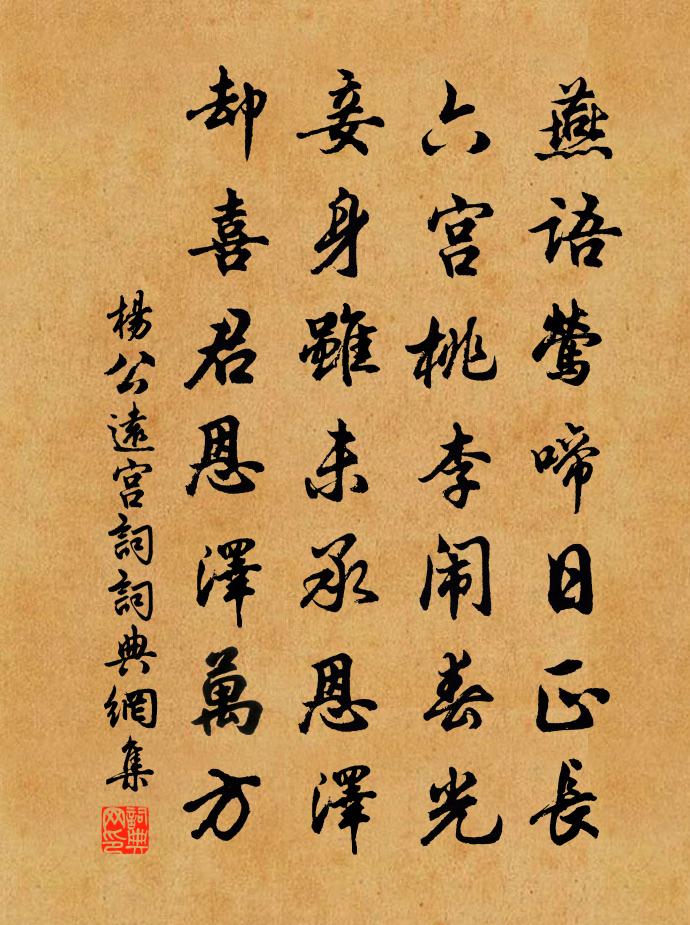 燕語鶯啼日正長
六宮桃李闹春光
妾身雖未承恩澤
却喜君恩澤萬方
楊公遠宮詞詞典網集
詞典网印